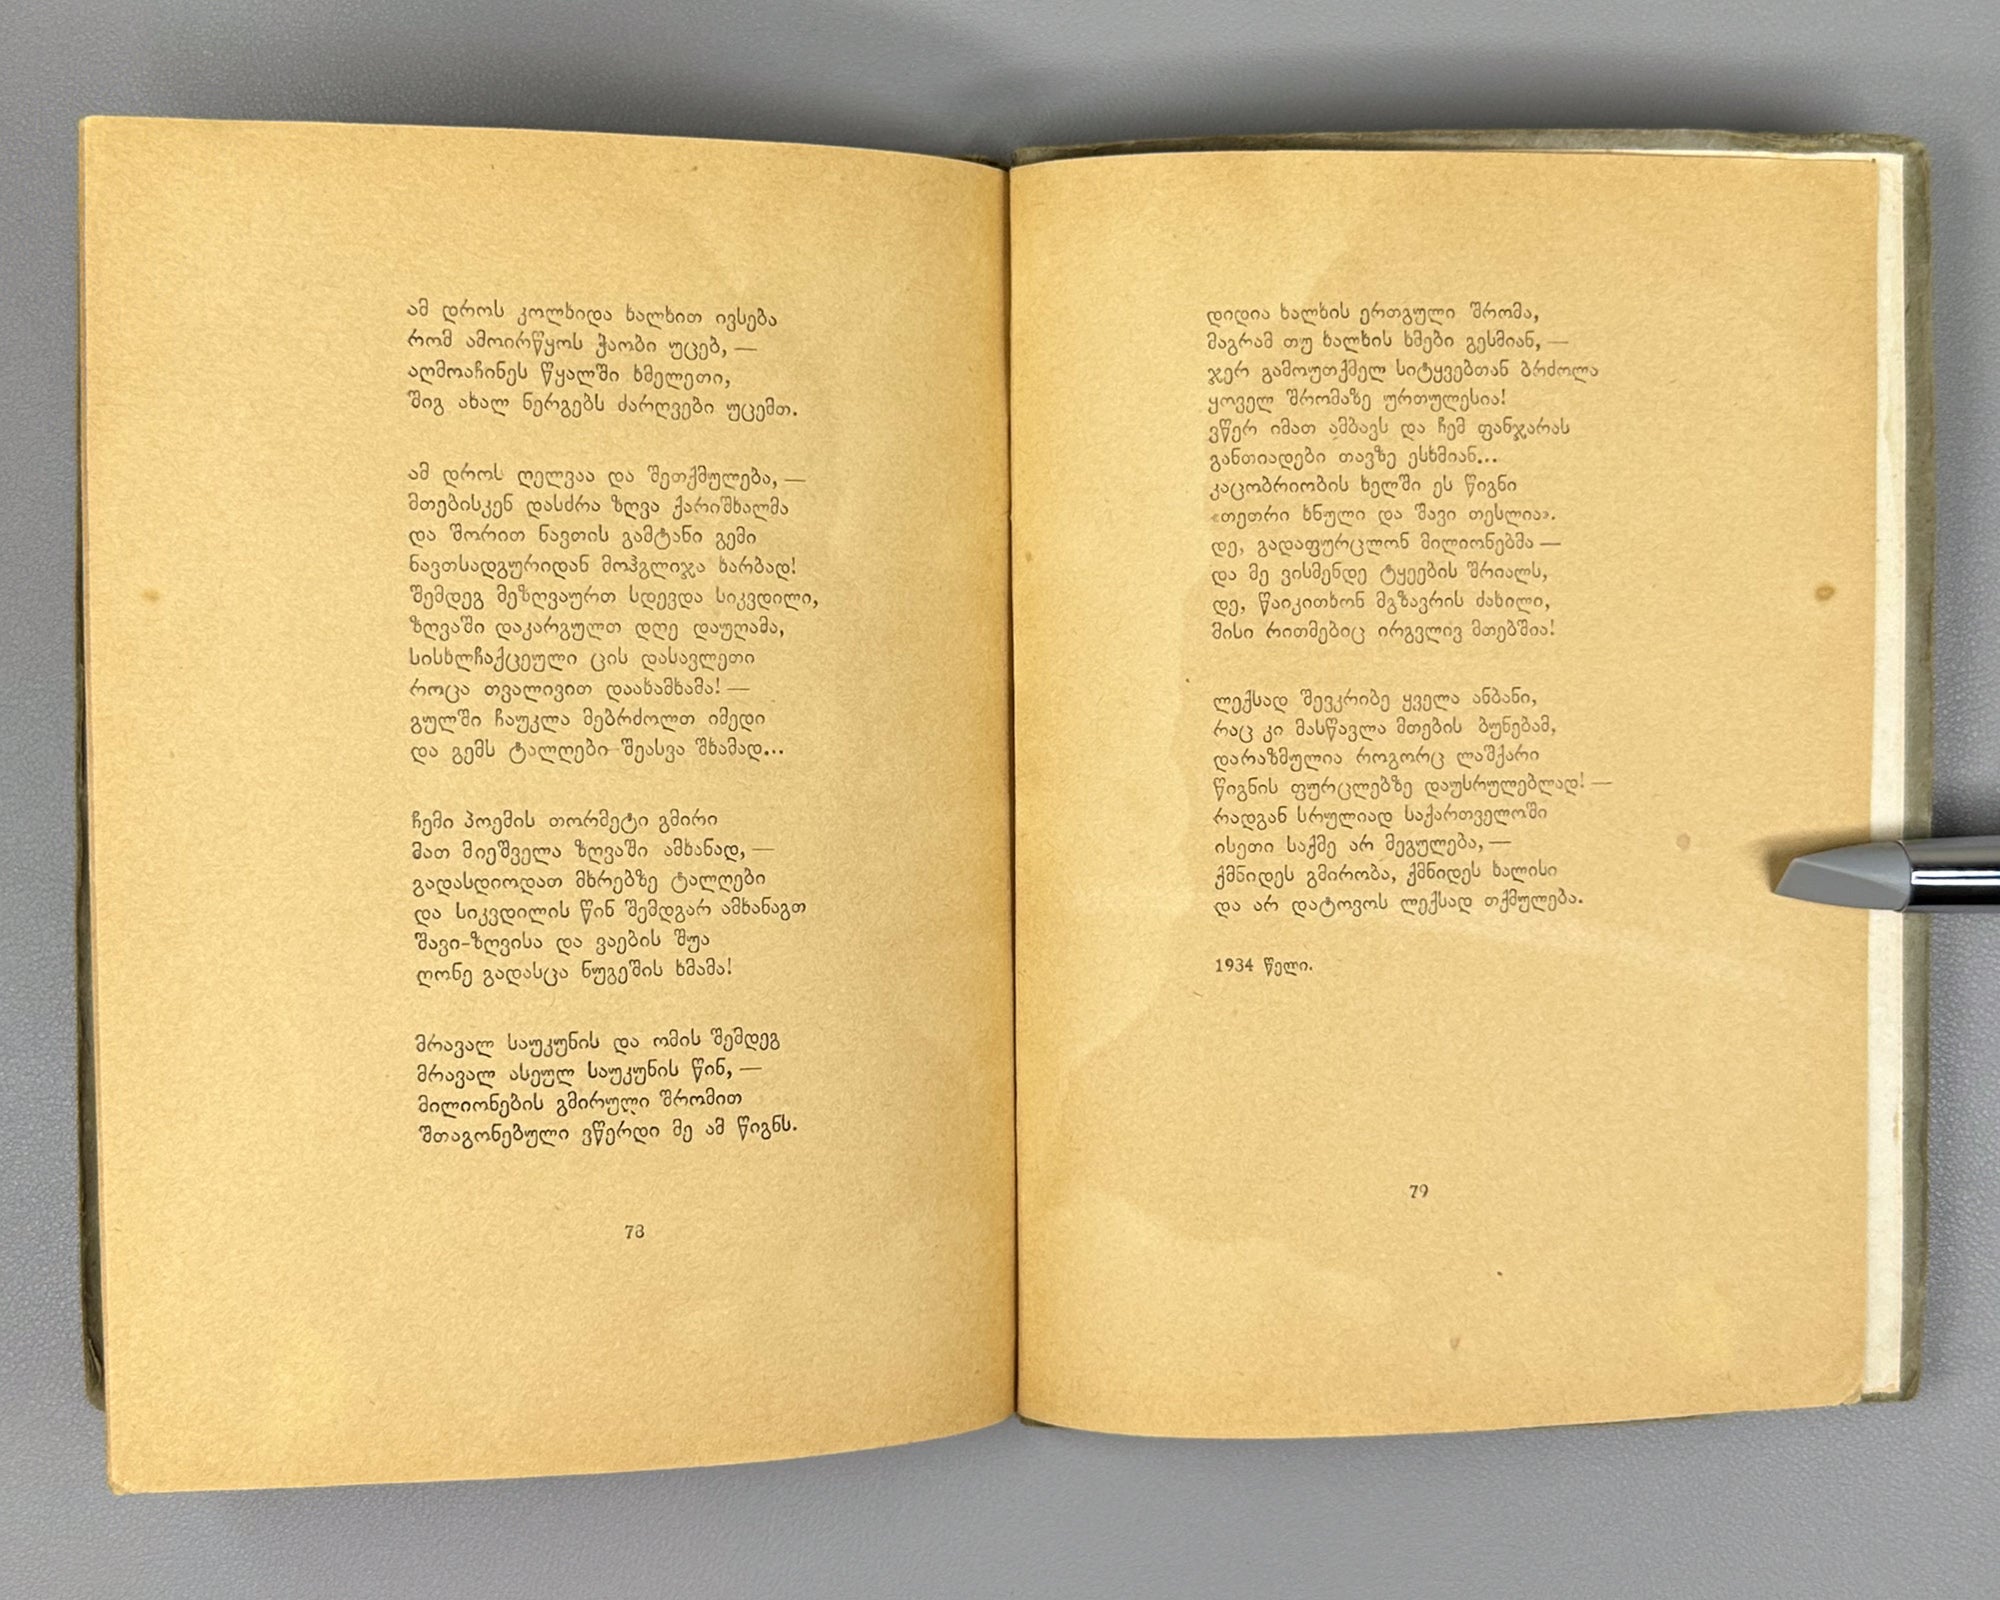 ამ დროს კოლხიდა ხალხით ივსება
რომ ამოირწყოს ჭაობი უცებ, —
აღმოაჩინეს წყალში ხმელეთი,
შიგ ახალ ნერგებს ძარღვები უცემთ.
ამ დროს ღელვაა და შეთქმულება, —
მთებისკენ დასძრა ზღვა ქარიშხალმა
და შორით ნავთის გამტანი გემი
ნავთსადგურიდან მოჰგლიჯა ხარბად!
შემდეგ მეზღვაურთ სდევდა სიკვდილი,
ზღვაში დაკარგულთ დღე დაუღამა,
სისხლჩაქცეული ცის დასავლეთი
როცა თვალივით დაახამხამა! —
გულში ჩაუკლა მებრძოლთ იმედი
და გემს ტალღები შეასვა შხამად...
ჩემი პოემის თორმეტი გმირი
მათ მიეშველა ზღვაში ამხანად, —
გადასდიოდათ მხრებზე ტალღები
და სიკვდილის წინ შემდგარ ამხანაგთ
შავი-ზღვისა და ვაების შუა
ღონე გადასცა ნუგეშის ხმამა!
მრავალ საუკუნის და ომის შემდეგ
მრავალ ასეულ საუკუნის წინ, —
მილიონების გმირული შრომით
შთაგონებული ვწერდი მე ამ წიგნს.
78
დიდია ხალხის ერთგული შრომა,
მაგრამ თუ ხალხის ხმები გესმიან, —
ჯერ გამოუთქმელ სიტყვებთან ბრძოლა
ყოველ შრომაზე ურთულესია!
ვწერ იმათ ამბავს და ჩემ ფანჯარას
განთიადები თავზე ესხმიან...
კაცობრიობის ხელში ეს წიგნი
«თეთრი ხნული და შავი თესლია».
დე, გადაფურცლონ მილიონებმა —
და მე ვისმენდე ტყეების შრიალს,
დე, წაიკითხონ მგზავრის ძახილი,
მისი რითმებიც ირგვლივ მთებშია!
ლექსად შევკრიბე ყველა ანბანი,
რაც კი მასწავლა მთების ბუნებამ,
დარაზმულია როგორც ლაშქარი
წიგნის ფურცლებზე დაუსრულებლად! —
რადგან სრულიად საქართველოში
ისეთი საქმე არ მეგულება, —
ქმნიდეს გმირობა, ქმნიდეს ხალისი
და არ დატოვოს ლექსად თქმულება.
1934 წელი.
79